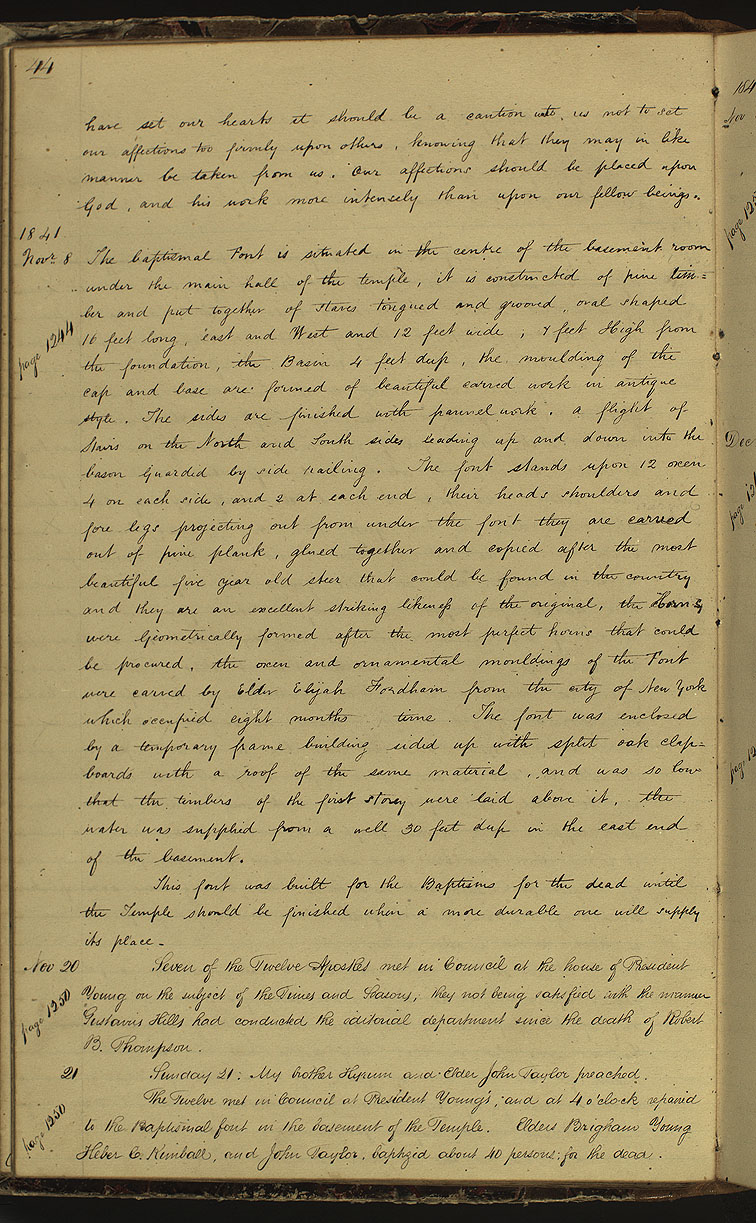 44
have set our hearts it should be a caution unto us not to set
our affections too firmly upon others, knowing that they may in like
manner be taken from us. Our affections should be placed upon
God, and his work more intensely than upon our fellow beings.
1841
Novr 8 The baptismal Font is situated in the centre of the basement room
under the main hall of the temple, it is constructed of pine tim=
ber and put together of staves tongued and grooved, oval shaped
page 1244 16 feet long, east and West and 12 feet wide, 7 feet High from
the foundation, the Basin 4 feet deep, the moulding of the
cap and base are formed of beautiful carved work in antique
style. The sides are finished with pannel work. a flight of
Stairs on the North and South sides leading up and down into the
bason guarded by side railing. The font stands upon 12 oxen
4 on each side, and 2 at each end, their heads shoulders and
fore legs projecting out from under the font they are carved
out of pine plank, glued together and copied after the most
beautiful five year old steer that could be found in the country
and they are an excellent striking likeness of the original, the Horns
were Geometrically formed after the most perfect horns that could
be procured. the oxen and ornamental mouldings of the Font
were carved by Elder Elijah Fordham from the city of New York
which occupied eight months time. The font was enclosed
by a temporary frame building sided up with split oak clap=
boards with a roof of the same material, and was so low
that the timbers of the first story were laid above it, the
water was supplied from a well 30 feet deep in the east end
of the basement.
This font was built for the Baptisms for the dead until
the Temple should be finished when a more durable one will supply
its place—
Nov 20 Seven of the Twelve Apostles met in Council at the house of President
Young on the subject of the Times and Seasons, they not being satisfied with the manner
page 1250 Gustavus Hills had conducted the editorial department since the death of Robert
B. Thompson.
21 Sunday 21. My brother Hyrum and Elder John Taylor preached.
The Twelve met in Council at President Young's, and at 4 o'clock repaired
page 1250 to the Baptismal font in the basement of the Temple. Elders Brigham Young
Heber C. Kimball, and John Taylor, baptized about 40 persons, for the dead.
184
Nov
page
Dec
page
page